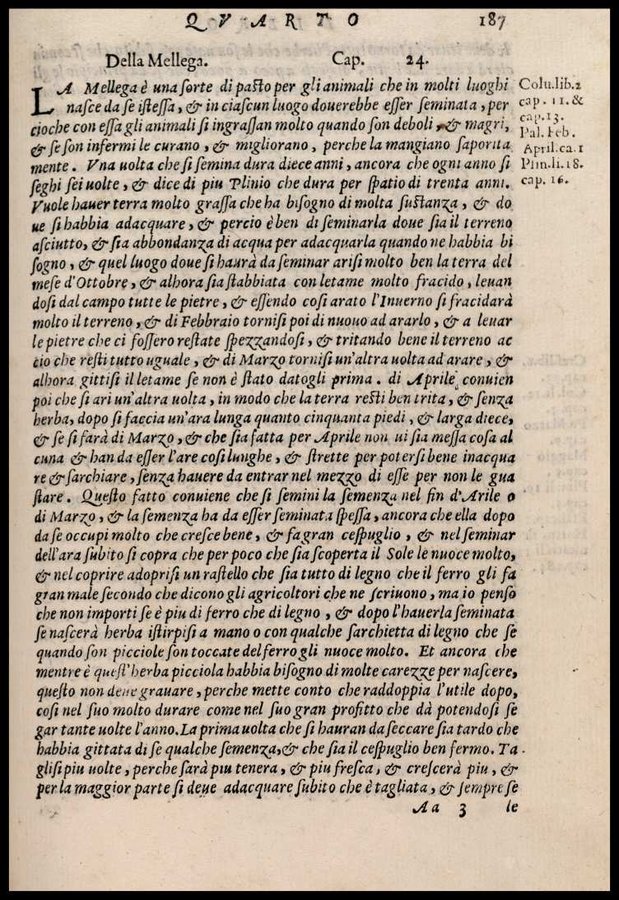 QVARTO 187
Della Mellega. Cap. 24.
LA Mellega è una sorte di pasto per gli animali che in molti luoghi
nasce da se istessa, & in ciascun luogo douerebbe esser seminata, per
cioche con essa gli animali si ingrassan molto quando son deboli, & magri,
& se son infermi le curano, & migliorano, perche la mangiano saporita
mente. Vna uolta che si semina dura diece anni, ancora che ogni anno si
seghi sei uolte, & dice di piu Plinio che dura per spatio di trenta anni.
Vuole hauer terra molto grassa che ha bisogno di molta sustanza, & do
ue si habbia adacquare, & percio è ben di seminarla doue sia il terreno
asciutto, & sia abbondanza di acqua per adacquarla quando ne habbia bi
sogno, & quel luogo doue si haurà da seminar arisi molto ben la terra del
mese d'Ottobre, & alhora sia stabbiata con letame molto fracido, leuan
dosi dal campo tutte le pietre, & essendo cosi arato l'Inuerno si fracidarà
molto il terreno, & di Febbraio tornisi poi di nuouo ad ararlo, & a leuar
le pietre che ci fossero restate spezzandosi, & tritando bene il terreno ac
cio che resti tutto uguale, & di Marzo tornisi un'altra uolta ad arare, &
alhora gittisi il letame se non è stato datogli prima. di Aprile conuien
poi che si ari un'altra uolta, in modo che la terra resti ben trita, & senza
herba, dopo si faccia un'ara lunga quanto cinquanta piedi, & larga diece,
& se si farà di Marzo, & che sia fatta per Aprile non ui sia messa cosa al
cuna & han da esser l'are cosi lunghe, & strette per potersi bene inacqua
re & sarchiare, senza hauere da entrar nel mezzo di esse per non le gua
stare. Questo fatto conuiene che si semini la semenza nel fin d'Arile o
di Marzo, & la semenza ha da esser seminata spessa, ancora che ella dopo
da se occupi molto che cresce bene, & fa gran cespuglio, & nel seminar
dell'ara subito si copra che per poco che sia scoperta il Sole le nuoce molto,
& nel coprire adoprisi un rastello che sia tutto di legno che il ferro gli fa
gran male secondo che dicono gli agricoltori che ne scriuono, ma io penso
che non importi se è piu di ferro che di legno, & dopo l'hauerla seminata
se nascerà herba istirpisi a mano o con qualche sarchietta di legno che se
quando son picciole son toccate del ferro gli nuoce molto. Et ancora che
mentre è quest'herba picciola habbia bisogno di molte carezze per nascere,
questo non deue grauare, perche mette conto che raddoppia l'utile dopo,
cosi nel suo molto durare come nel suo gran profitto che dà potendosi se
gar tante uolte l'anno. La prima uolta che si hauran da seccare sia tardo che
habbia gittata di se qualche semenza, & che sia il cespuglio ben fermo. Ta
glisi piu uolte, perche sarà piu tenera, & piu fresca, & crescerà piu, &
per la maggior parte si deue adacquare subito che è tagliata, & sempre se
Aa 3 le
Colu.lib.2
cap. 11. &
cap.13.
Pal. Feb.
April.ca.1
Plin.li.18.
cap. 16.